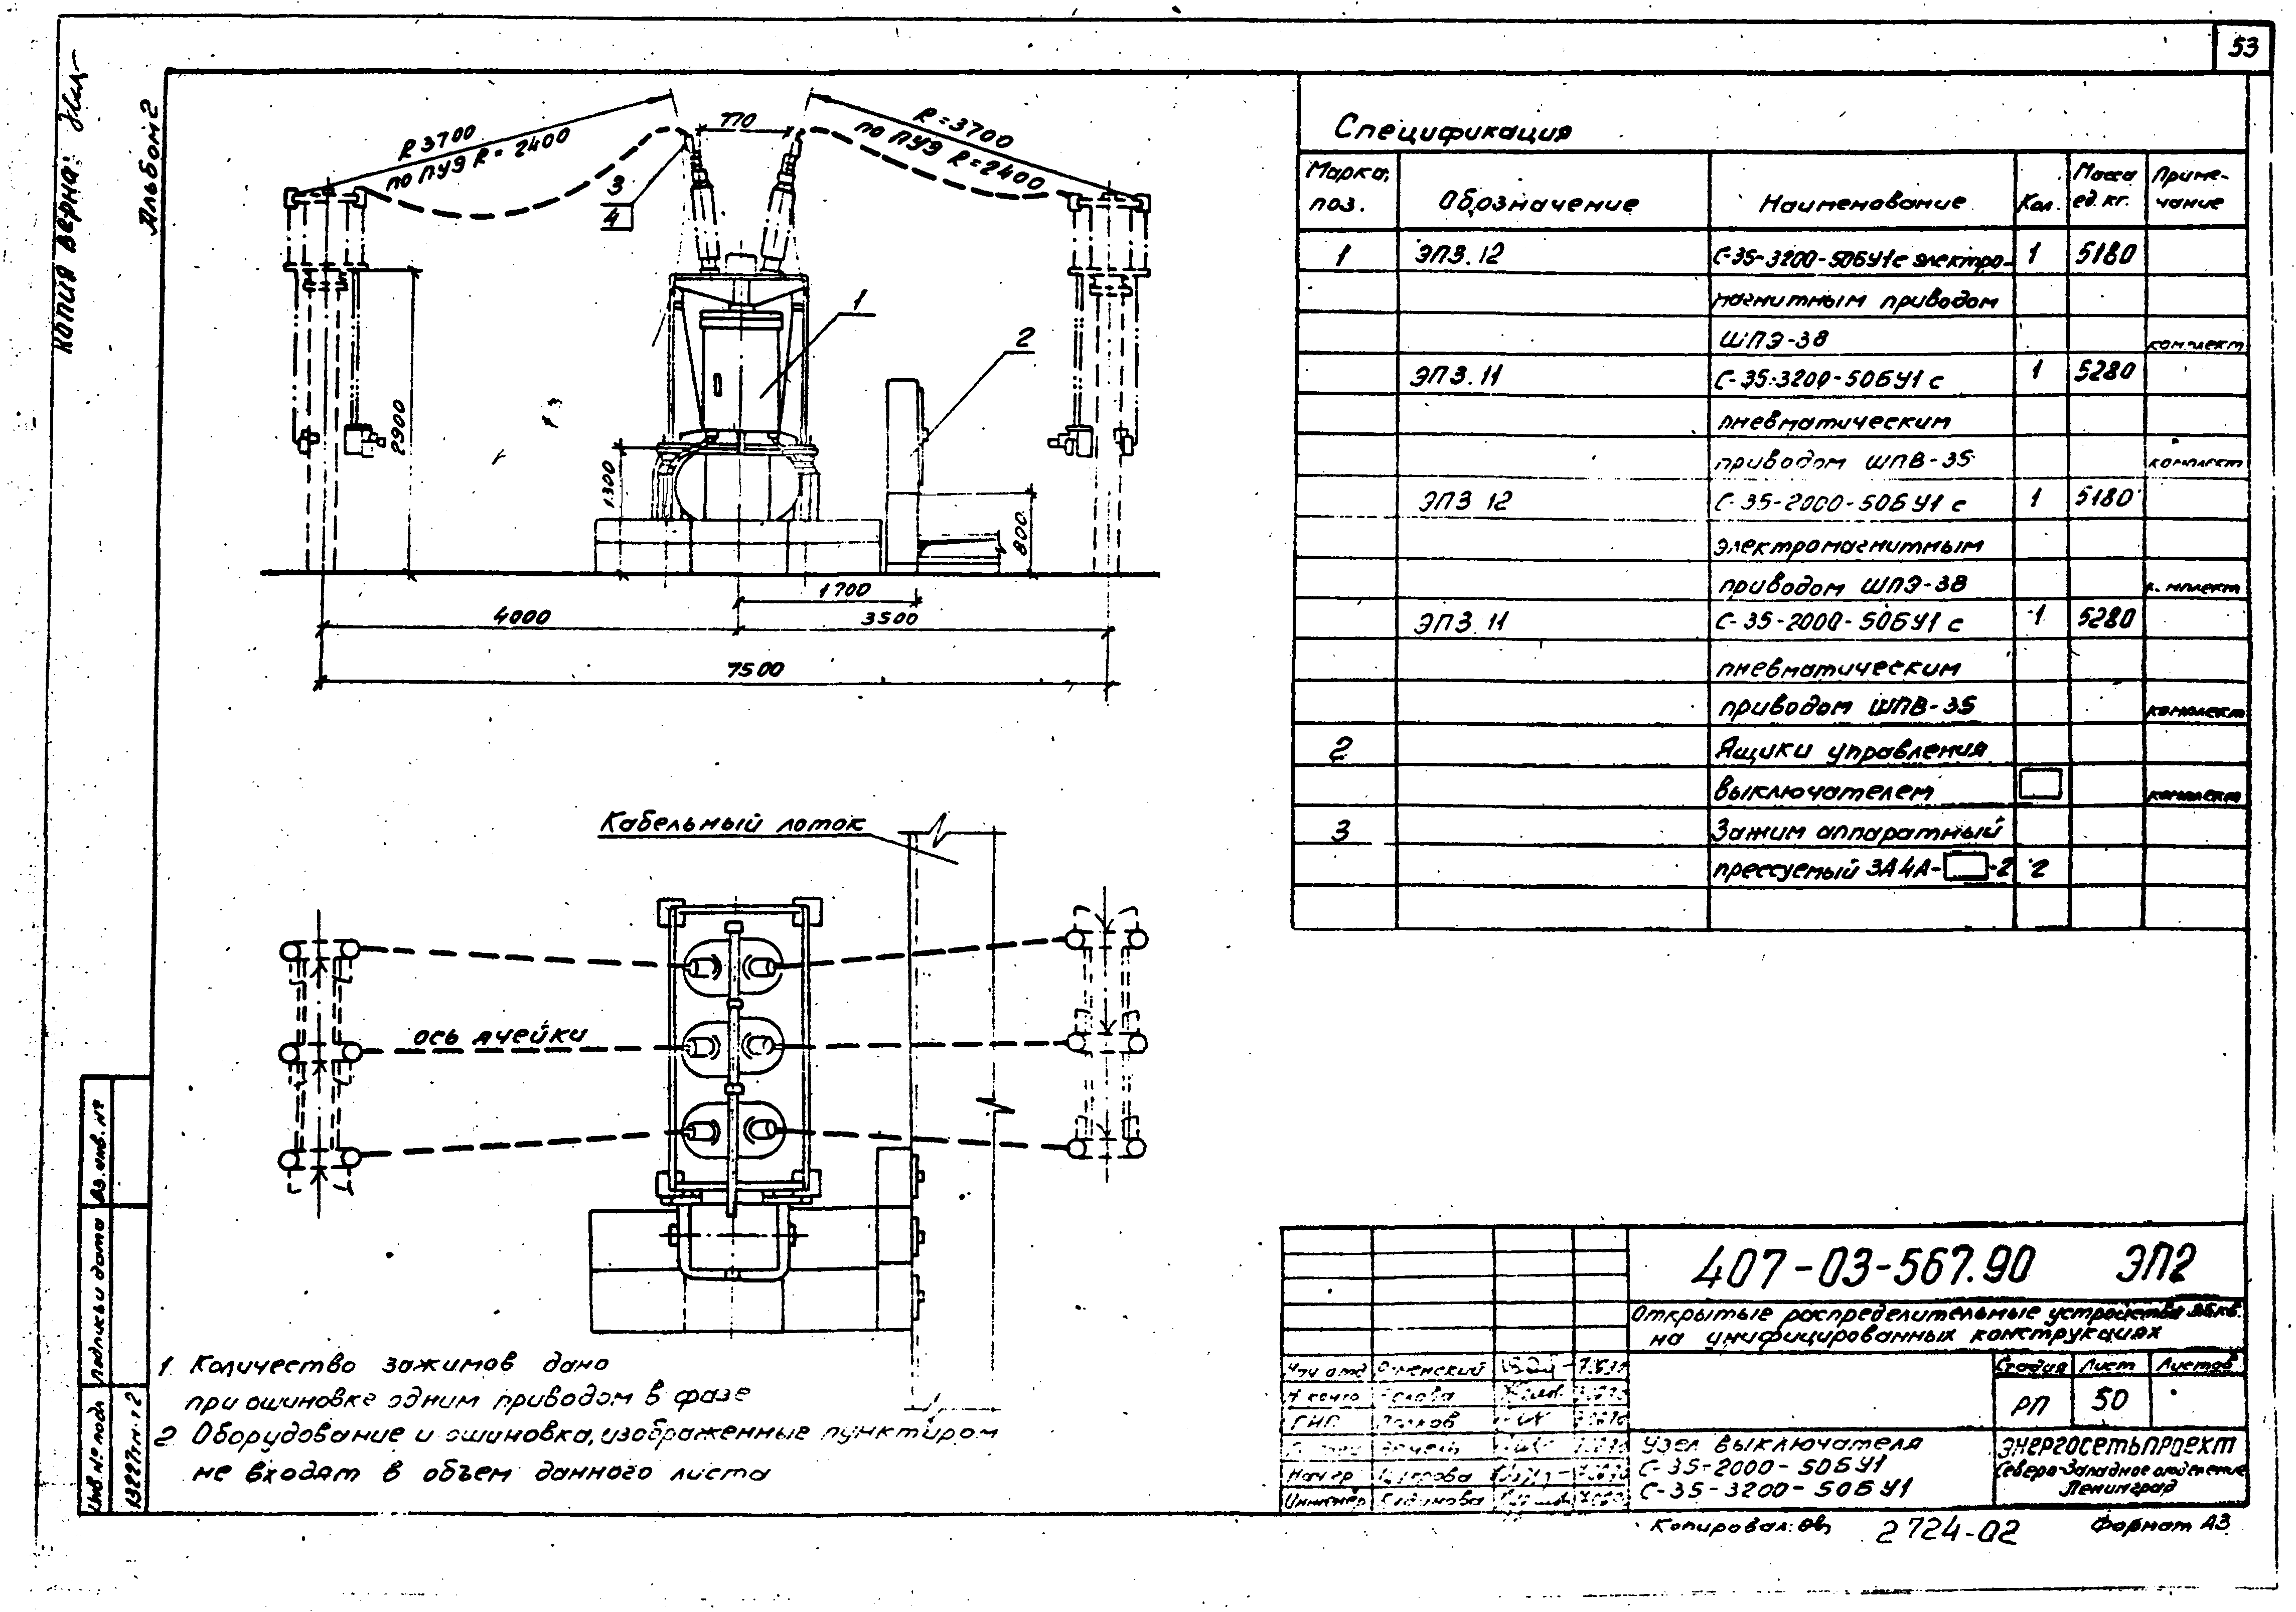 53
Копия верна:
Альбом 2
R 3700
по ПУЭ R = 2400
770
R = 3700
по ПУЭ R = 2400
3
4
1
2
2900
1300
800
1700
4000
3500
7500
Кабельный лоток
ось ячейки
1 Количество зажимов дано
при ошиновке одним приводом в фазе
2 Оборудование и ошиновка, изображенные пунктиром
не входят в объем данного листа
Спецификация
Марка, поз. Обозначение Наименование Кол. Масса ед. кг. Примечание
1 ЭП3.12 С-35-3200-50БУ1 с электро- 1 5180
магнитным приводом
ШПЭ-38 комплект
ЭП3.11 С-35-3200-50БУ1 с 1 5280
пневматическим
приводом ШПВ-35 комплект
ЭП3 12 С-35-2000-50БУ1 с 1 5180
электромагнитным
приводом ШПЭ-38 комплект
ЭП3 11 С-35-2000-50БУ1 с 1 5280
пневматическим
приводом ШПВ-35 комплект
2 Ящики управления
выключателем комплект
3 Зажим аппаратный
прессуемый ЗА4А- -2 2
407-03-567.90 ЭП2
Открытые распределительные устройства 35кв.
на унифицированных конструкциях
Стадия Лист Листов
РП 50
Нач. отд
Н контр
ГИП
Нач гр
Инженер
Узел выключателя
С-35-2000-50БУ1
С-35-3200-50БУ1
ЭНЕРГОСЕТЬПРОЕКТ
Северо-Западное отделение
Ленинград
Копировал:
2724-02
Формат А3
Инв. № подл
Подпись и дата
Вз. инв. №
13227тм-т2